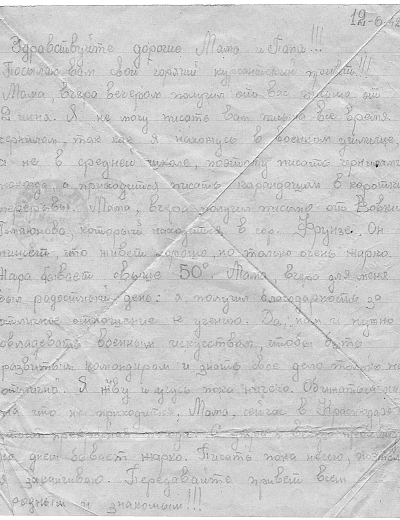 12-6-42
Здравствуйте дорогие Мама и Папа!!!
Посылаю вам свой горячий курсантский привет!!!
Мама, вчера вечером получил от вас письмо от
2 июня. Я не могу писать вам письма все время
чернилом, так как я нахожусь в военном училище,
а не в средней школе, поэтому писать чернилом
некогда, а приходится писать карандашом в короткие
перерывы. Мама, вчера получил письмо от Вовки
который находится в гор. Фрунзе. Он
пишет, что живет хорошо но только очень жарко.
Жара бывает свыше 50°. Мама вчера для меня
был радостный день: я получил благодарность за
отличное отношение к учению. Да, нам и нужно
овладевать военным искусством, чтобы быть
развитым командиром и знать свое дело только на
отлично. Я живу и учусь пока ничего. Обижаться ни
на что не приходится. Мама, сейчас в
прекрасная погода. С утра и вечера прохладно
на днем бывает жарко. Писать пока нечего, поэтому
я заканчиваю. Передавайте привет всем
родным и знакомым!!!